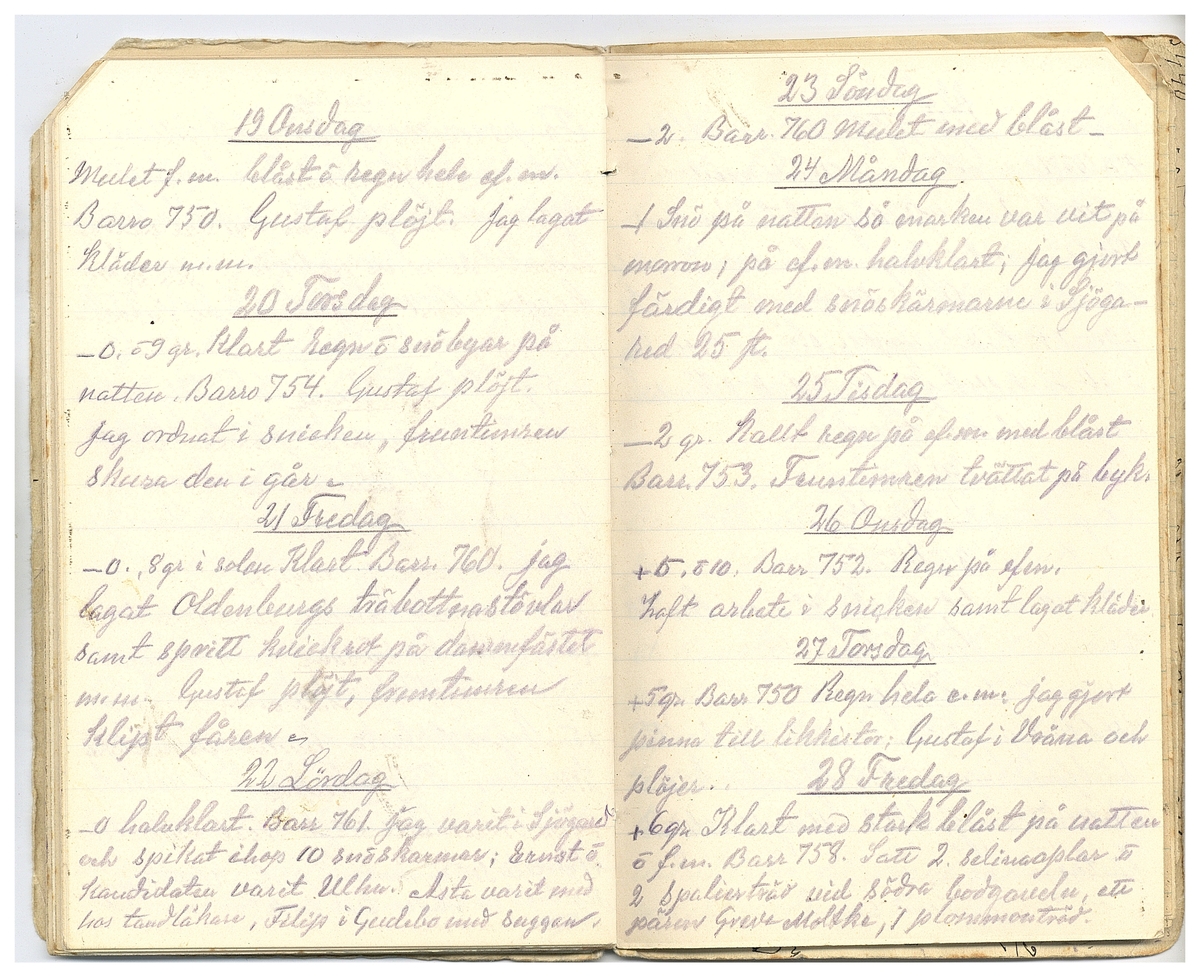 19 Onsdag
Mulet f.m. blåst ō regn hele ef.m.
Barro 750. Gustaf plöjt. Jag lagat
kläder m.m.
20 Torsdag
–0. ō 9 gr. Klart regn ō snöbyar på
natten. Barro 754. Gustaf plöjt.
Jag ordnat i snicken, fruntimren
skura den i går
21 Fredag
–0. 8 gr i solen Klart. Barr. 760. jag
lagat Oldenburgs träbottnastövlar
samt spritt kvickrot på dammfästet
m.m. Gustaf plöjt, fruntimren
klipt fåren
22 Lördag
–0 halvklart. Barr 761. Jag varit i Sjögared
och spikat ihop 10 snöskärmar; Ernst ō
Kandidaten varit Ulhn. Asta varit med
hos tandläkare, Filip i Gudebo med suggan.
23 Söndag
–2. Barr. 760 Mulet med blåst –
24 Måndag
–1 Snö på natten så marken var vit på
morron; på ef.m. halvklart; jag gjort
färdigt med snöskärmarne i Sjöga-
red 25 st.
25 Tisdag
–2 gr. Kallt regn på ef.m med blåst
Barr. 753. Fruntimren tvättat på byk.
26 Onsdag
+5. ō 10. Barr 752. Regn på efm.
Haft arbete i snicken samt lagat kläder
27 Torsdag
+5 gr. Barr 750 Regn hela e.m. jag gjort
pinna till likkistor; Gustaf i Vråna och
plöjer.
28 Fredag
+6 gr. Klart med stark blåst på natten
ō f.m. Barr 758. Satt 2. selinaaplar ō
2 spalierträd ved södra bodgaveln, ett
päron Greve Moltke, 1 plommonträd.